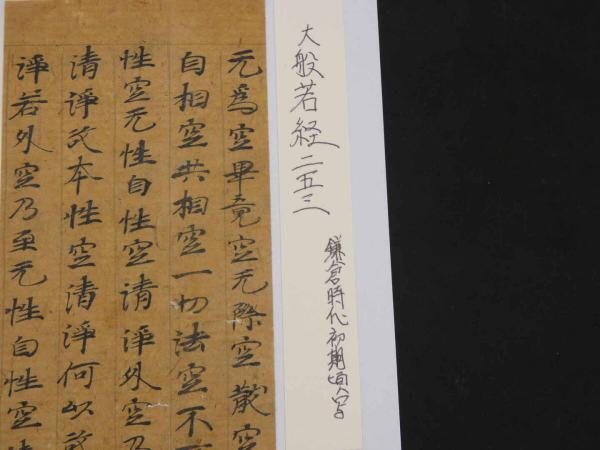 大般若経二五三
鎌倉時代初期頃写
无為空畢竟空无際空散空
自相空共相空一切法空不
性空无性自性空清淨外空乃
清淨故本性空清淨何以故
淨若外空乃至无性自性空清